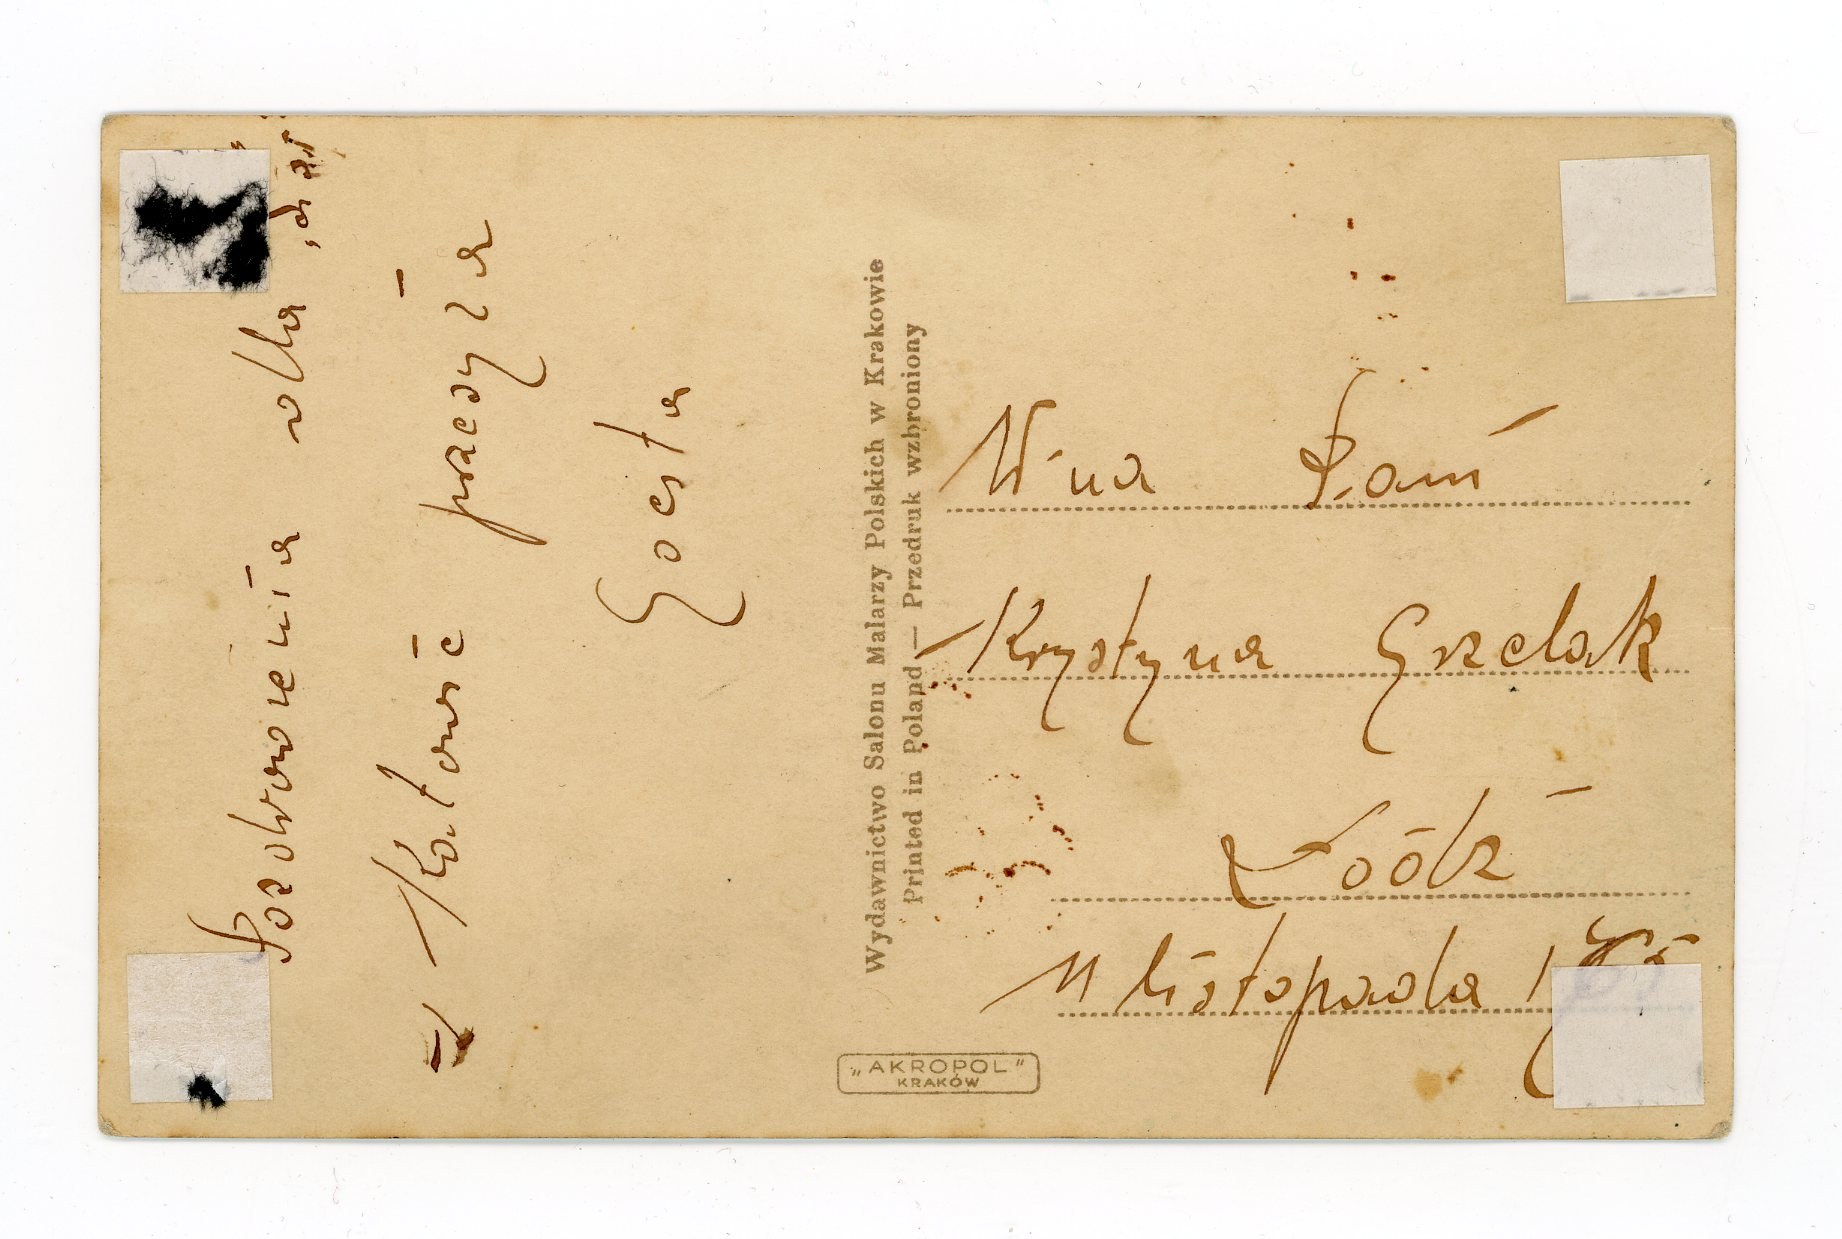 Pozdrowienia dla
Katowic przesyła
Gosta
Wydawnictwo Salonu Malarzy Polskich w Krakowie
Printed in Poland — Przedruk wzbroniony
W-na Pani
Krystyna Grzelak
Łódź
11 listopada
„AKROPOL"
KRAKÓW